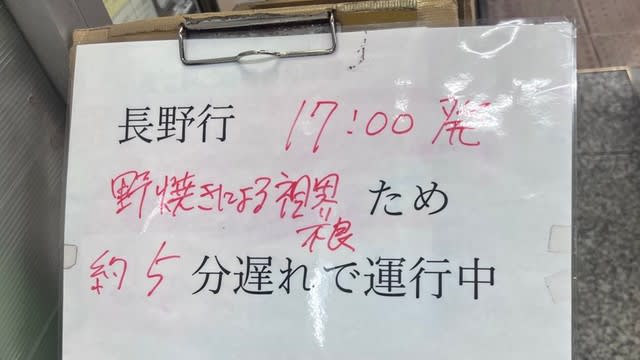 長野行 17:00 発
野焼きによる視界不良 ため
約5 分遅れで運行中